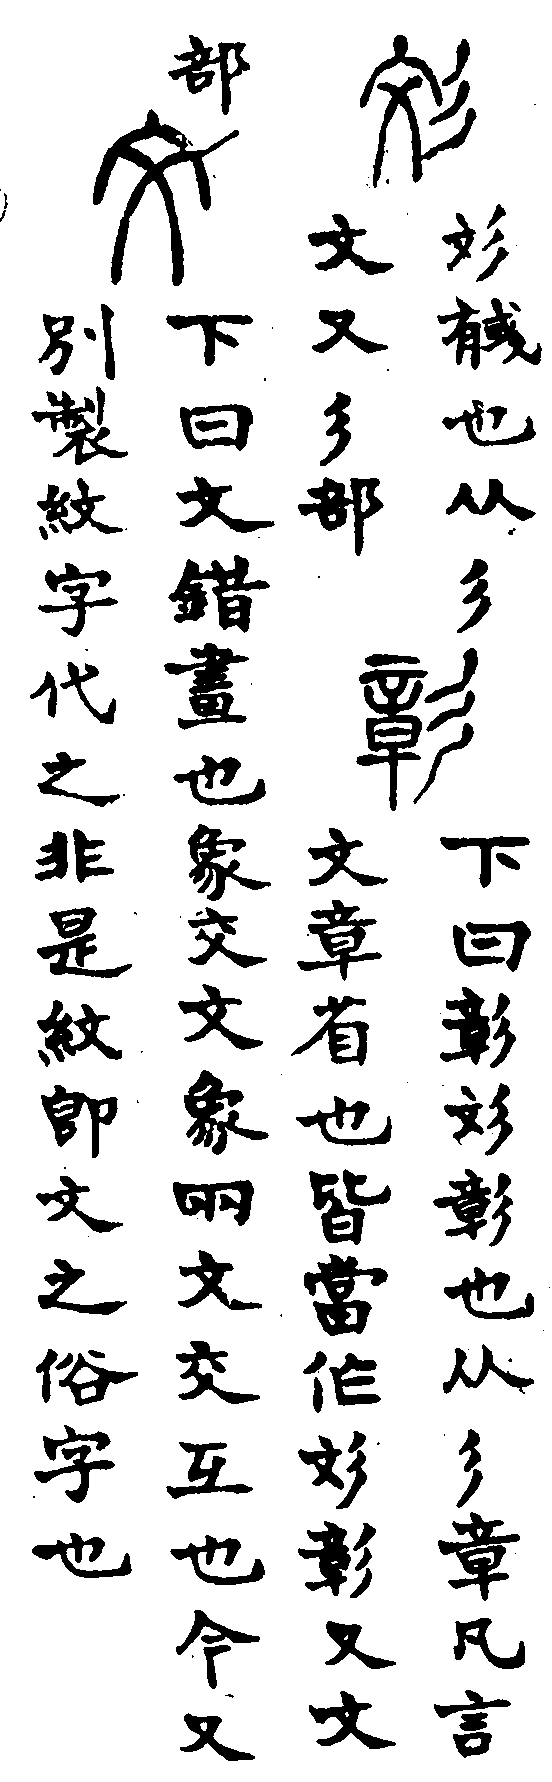 彣
彣戫也从彡
文又彡部
彰
下曰彰彣彰也从彡章凡言
文章省也皆當作彣彰又文
部
文
下曰文錯畫也象交文象兩文交互也今又
別製紋字代之非是紋卽文之俗字也